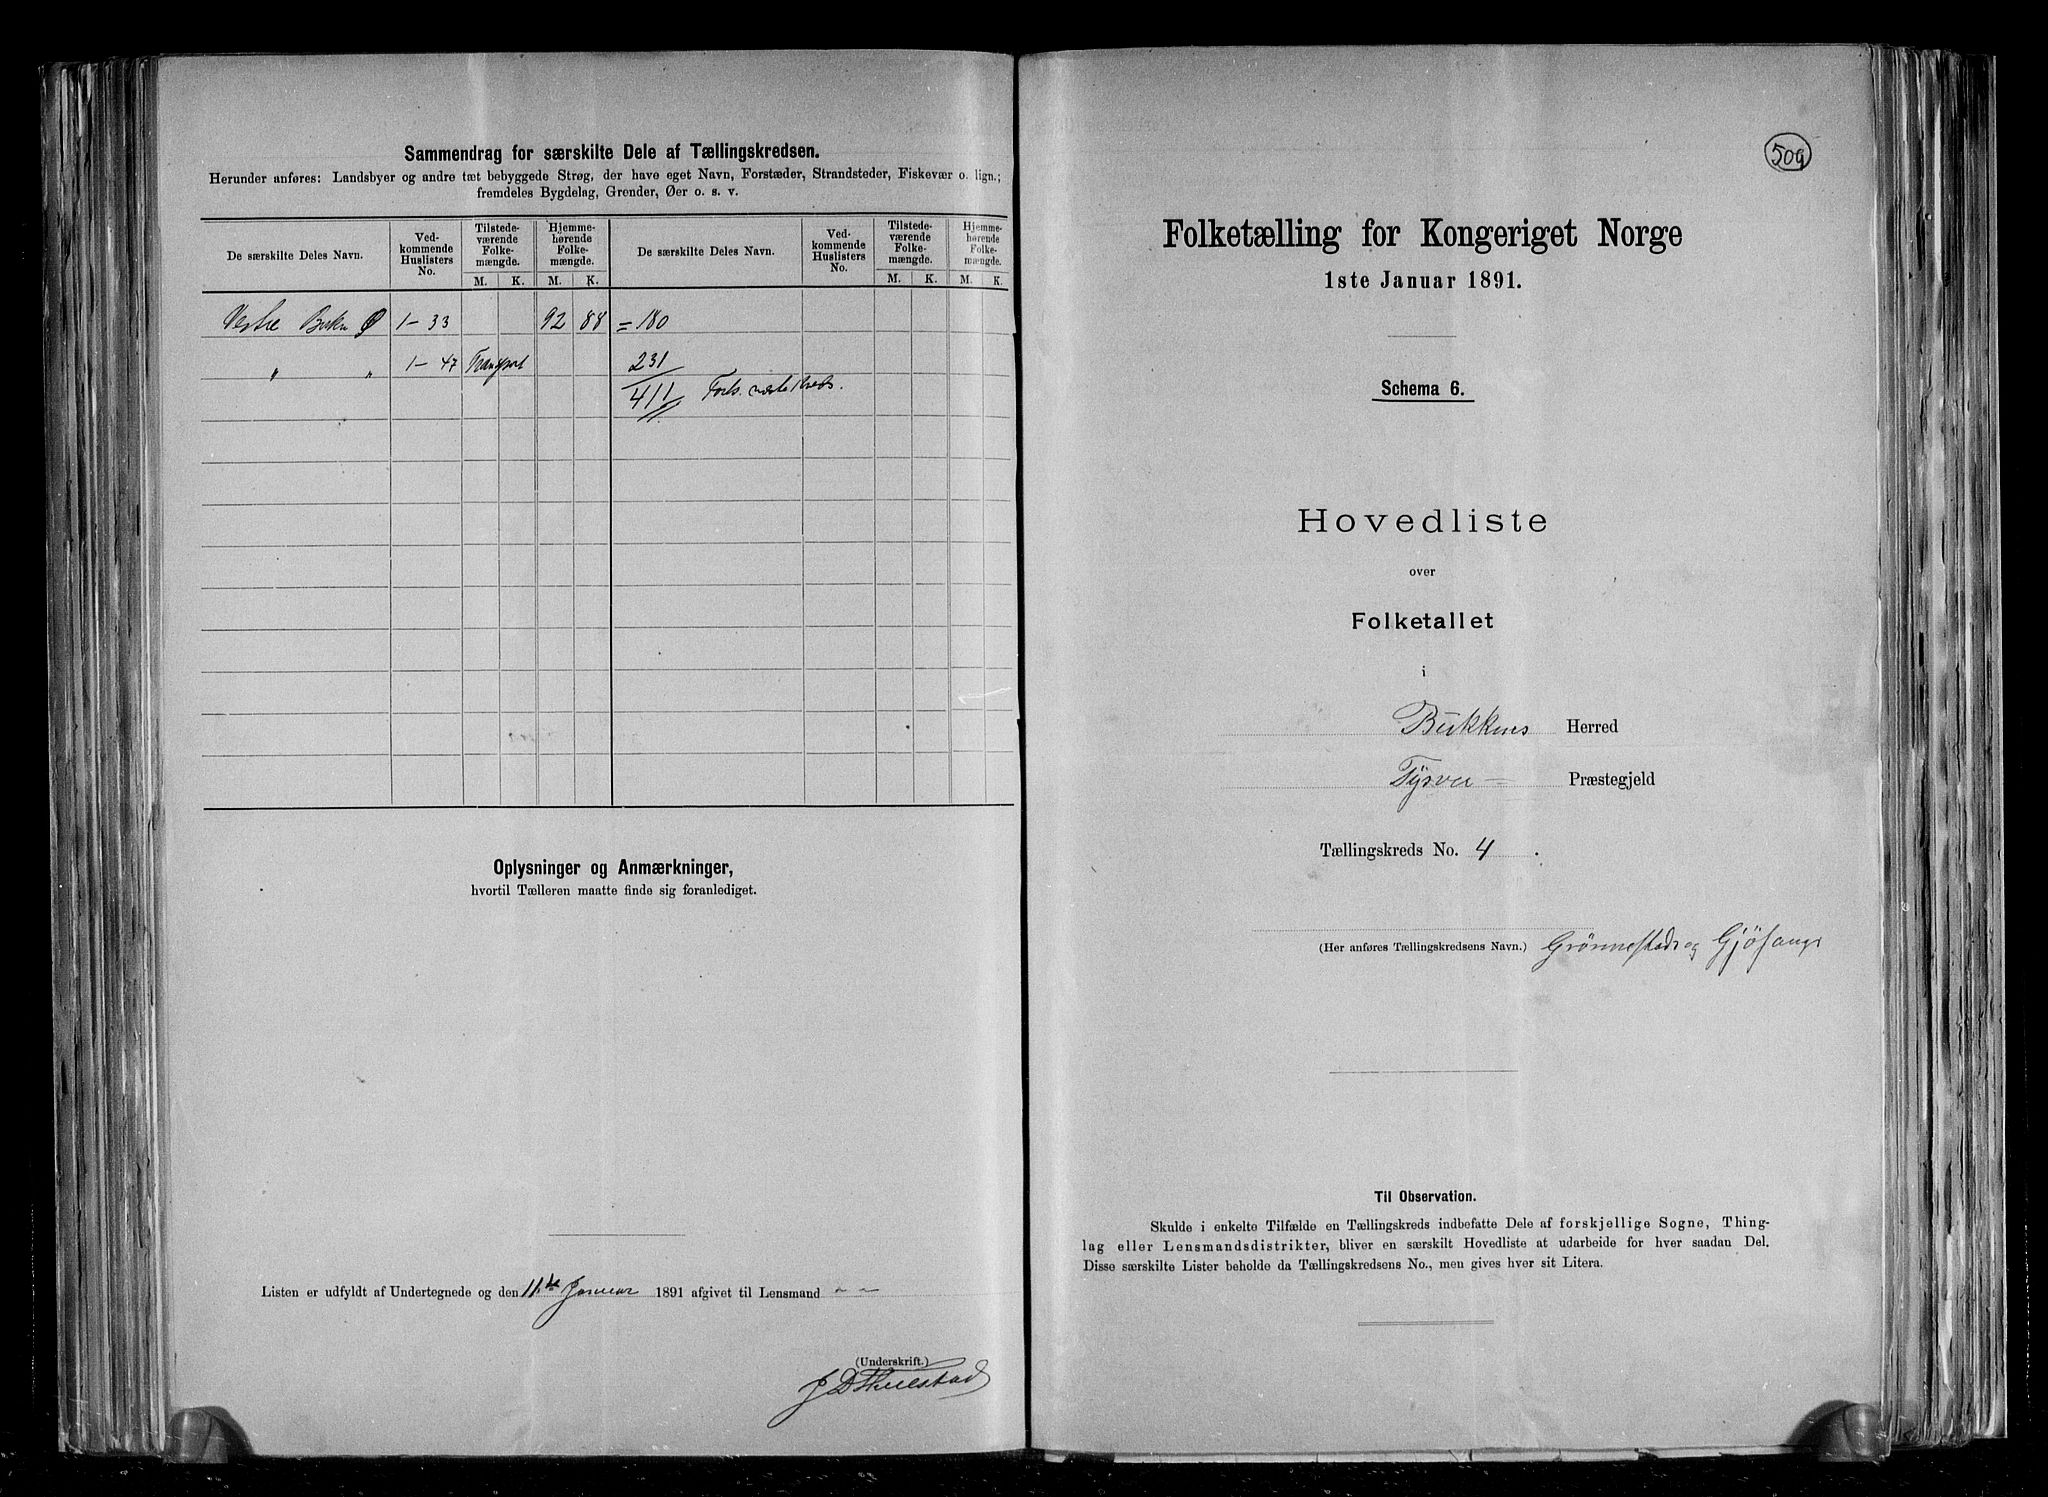 Sammendrag for særskilte Dele af Tællingskredsen.
Herunder anføres: Landsbyer og andre tæt bebyggede Strøg, der have eget Navn, Forstæder, Strandsteder, Fiskevær o. lign.;
fremdeles Bygdelag, Grender, Øer o. s. v.
De særskilte Deles Navn.
Ved-
kommende
Huslisters
No.
Tilstede-
værende
Folke-
mængde.
M. K.
Hjemme-
hørende
Folke-
mængde.
M. K.
De særskilte Deles Navn.
Ved-
kommende
Huslisters
No.
Tilstede-
værende
Folke-
mængde.
M. K.
Hjemme-
hørende
Folke-
mængde.
M. K.
Vestre Bukn Ø 1-33 92 88 = 180
" " 1-47 Transport 231
411 Forts. næste Kreds.
Oplysninger og Anmærkninger,
hvortil Tælleren maatte finde sig foranlediget.
Listen er udfyldt af Undertegnede og den 11te Januar 1891 afgivet til Lensmand
(Underskrift.)
509
Folketælling for Kongeriget Norge
1ste Januar 1891.
Schema 6.
Hovedliste
over
Folketallet
i
Bukkens Herred
Tysver Præstegjeld
Tællingskreds No. 4.
(Her anføres Tællingskredsens Navn.) Grönnestads og Gjösangs
Til Observation.
Skulde i enkelte Tilfælde en Tællingskreds indbefatte Dele af forskjellige Sogne, Thing-
lag eller Lensmandsdistrikter, bliver en særskilt Hovedliste at udarbeide for hver saadan Del.
Disse særskilte Lister beholde da Tællingskredsens No., men gives hver sit Litera.